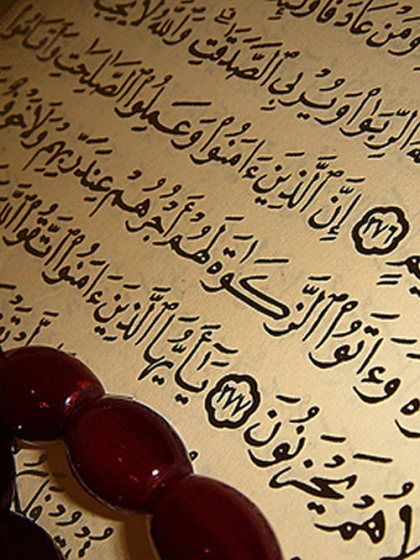 وَمَنْ عَادَ
ٱلرِّبَوٰا۟ وَيُرْبِى ٱلصَّدَقَـٰتِ وَٱللَّهُ لَا يُحِبُّ
٢٧٦ إِنَّ ٱلَّذِينَ ءَامَنُوا۟ وَعَمِلُوا۟ ٱلصَّـٰلِحَـٰتِ وَأَقَامُوا۟
وَءَاتَوُا۟ ٱلزَّكَوٰةَ لَهُمْ أَجْرُهُمْ عِندَ رَبِّهِمْ وَلَا خَوْفٌ
هُمْ يَحْزَنُونَ ٢٧٧ يَـٰٓأَيُّهَا ٱلَّذِينَ ءَامَنُوا۟ ٱتَّقُوا۟ ٱللَّهَ